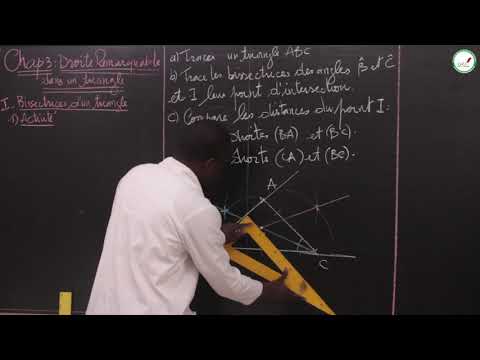 Chap3: Droite Remarquable
dans un triangle
I - Bissectrices d'un triangle
1) Activité
a) Tracer un triangle ABC
b) Trace les bissectrices des angles B̂ et Ĉ
et I leur point d'intersection.
c) Compare les distances du point I.
droites (BA) et (BC).
droite (CA) et (BC).
A
C